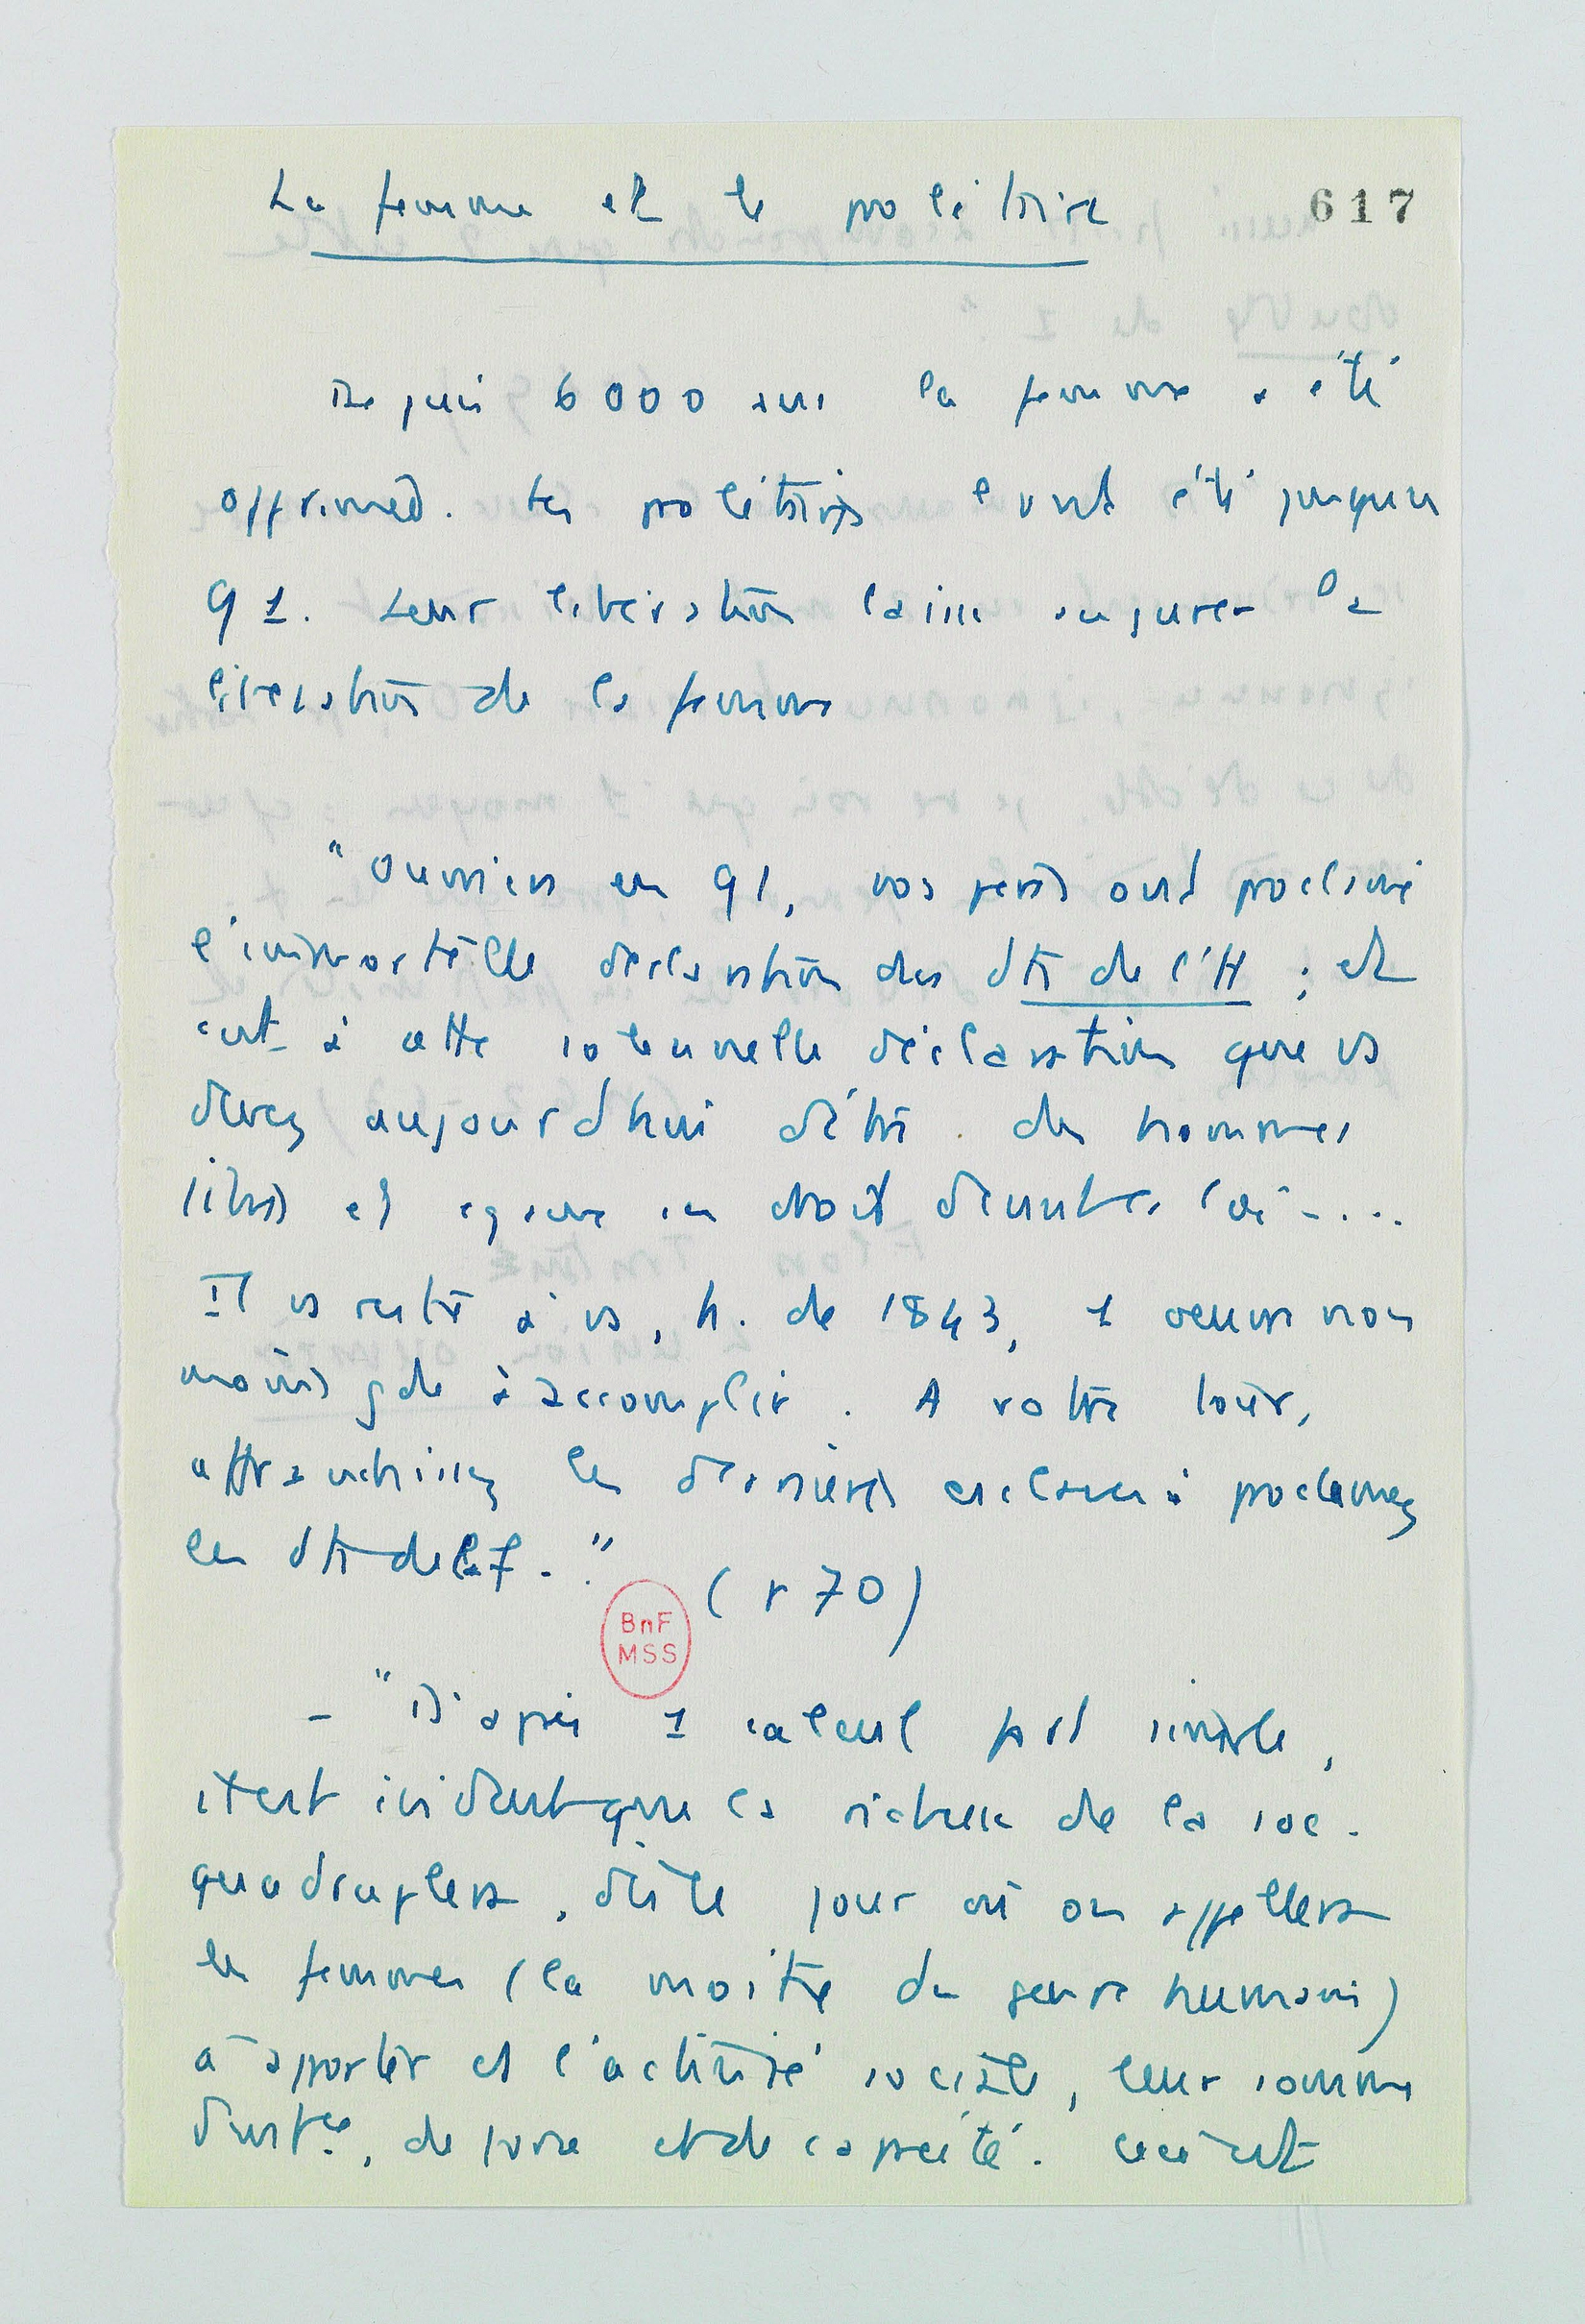 La femme et le prolétaire
617
Depuis 6000 ans la femme a été
opprimée. Les prolétaires l'ont été jusqu'en
91. Leur libération laisse augurer la
libération de la femme
"Ouvriers en 91, vos pères ont proclamé
l'immortelle déclaration des dts de l'H ; et
c'est à cette solennelle déclaration que vs
devez aujourd'hui d'être des hommes
libres et égaux en droit devant la loi ....
Il vs reste à vs, h. de 1843, 1 oeuvre non
moins gde à accomplir. A votre tour,
affranchissez les dernières esclaves : proclamez
les dts de la f. "
(r 70)
BnF
MSS
- "D'après 1 calcul fort simple,
il est évident que la richesse de la soc.
quadruplera, dès le jour où on appellera
les femmes (la moitié du genre humain)
à apporter ds l'activité sociale, leur somme
d'intce, de force et de capacité. Ceci est